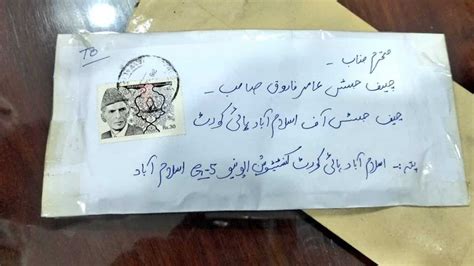 TO
محترم جناب
چیف جسٹس عامر فاروق صاحب -
چیف جسٹس آف اسلام آباد ہائی کورٹ
پتہ :- اسلام آباد ہائی کورٹ کنسٹیٹیوشن ایونیو G-5 اسلام آباد
Rs.30